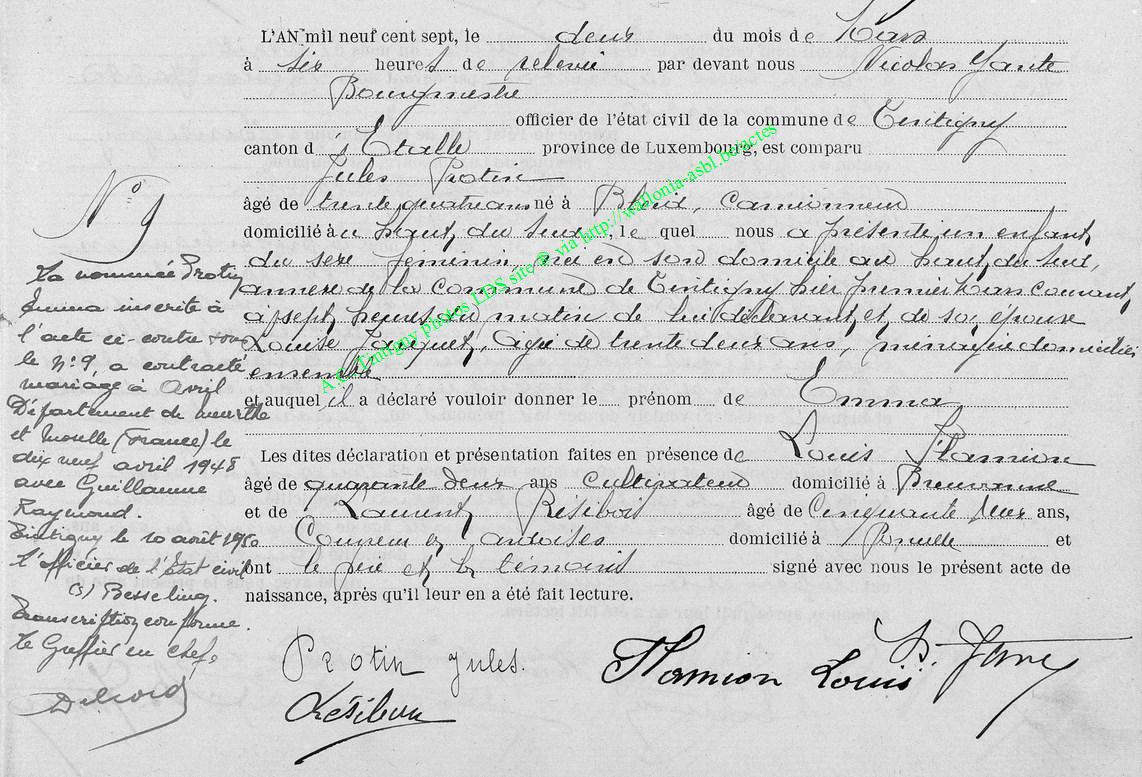 L'AN mil neuf cent sept, le deux du mois de Mars
à six heures de relevée par devant nous Nicolas
Bourgmestre
officier de l'état civil de la commune de Tintigny
canton d'Etalle province de Luxembourg, est comparu
Jules Protin
âgé de trente quatre ans né à camionneur
domicilié au haut du Sud, le quel nous a présenté un enfant
du sexe féminin, née en son domicile au haut du Sud,
annexe de la commune de Tintigny hier premier Mars courant,
à sept heures du matin de lui déclarant, et de son épouse
Louise Jacquet, âgée de trente deux ans, domiciliés
ensemble
et auquel il a déclaré vouloir donner le prénom de Emma
Les dites déclaration et présentation faites en présence de Louis Hamion
âgé de quarante deux ans cultivateur domicilié à Breuvanne
et de Laurent Résibois âgé de Cinquante deux ans,
Couvreur en ardoises domicilié à et
ont le père et les témoins signé avec nous le présent acte de
naissance, après qu'il leur en a été fait lecture.
N° 9
La nommée Protin
Emma inscrite à
l'acte ci-contre sous
le N° 9, a contracté
mariage à Avril
Département de meurthe
et Moselle (France) le
dix neuf avril 1948
avec Guillaume
Raymond.
Tintigny le 10 août 1950
L'officier de l'Etat civil
(s) Besseling.
Transcription conforme.
Le Greffier en chef,
Protin Jules.
Hamion Louis
Résibois
A.C. Tintigny photos LDS site @ via http://wallonia-asbl.be/actes